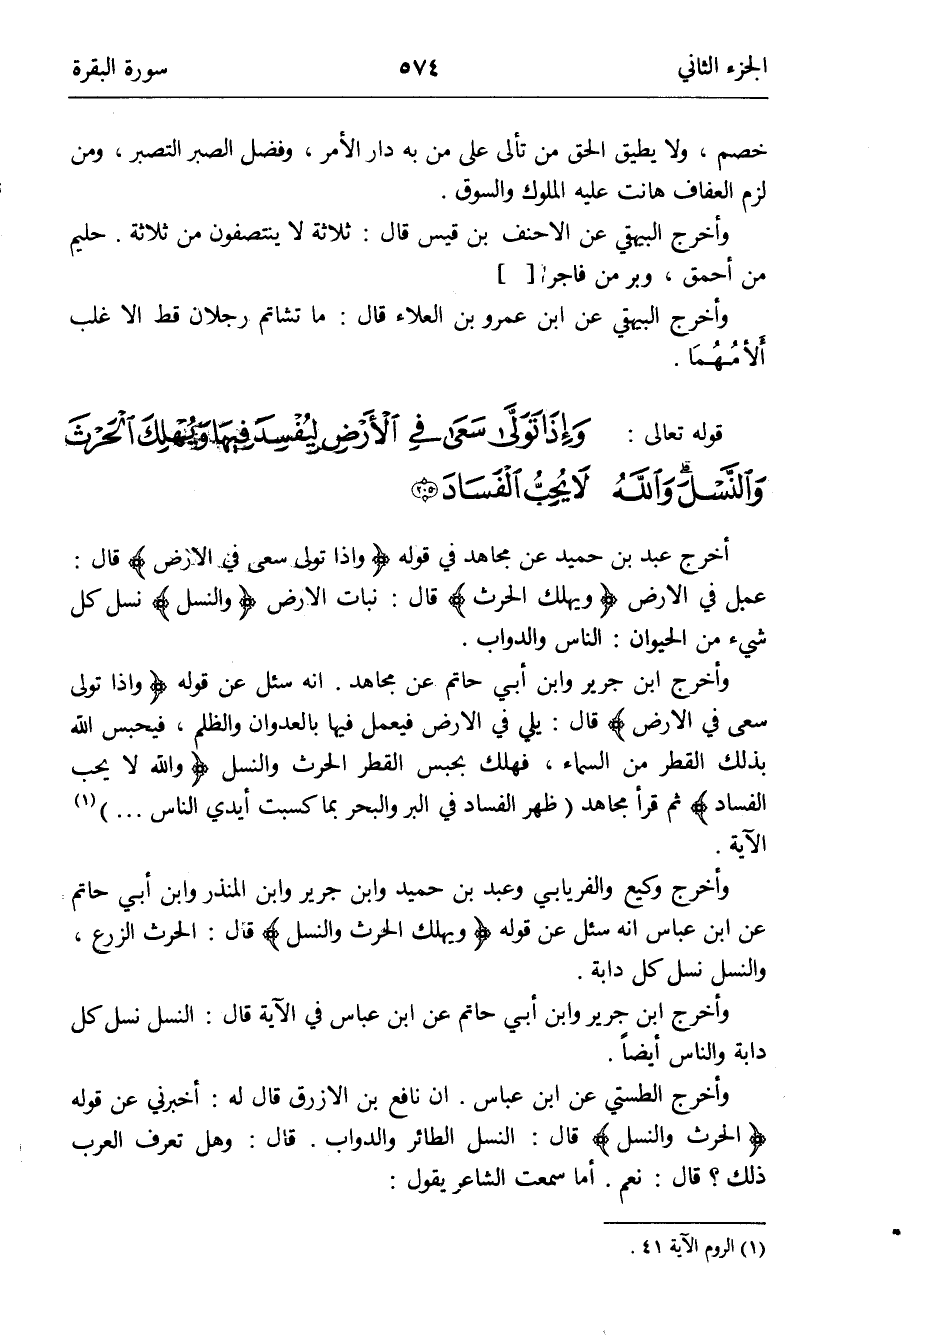 الجزء الثاني ٥٧٤ سورة البقرة
خصم ، ولا يطيق الحق من تألى على من به دار الأمر ، وفضل الصبر التصبر ، ومن
لزم العفاف هانت عليه الملوك والسوق .
وأخرج البيهقي عن الاحنف بن قيس قال : ثلاثة لا ينتصفون من ثلاثة . حليم
من أحمق ، وبر من فاجر [ ]
وأخرج البيهقي عن ابن عمرو بن العلاء قال : ما تشاتم رجلان قط الا غلب
أَلأمُهُمَا .
قوله تعالى : وَإِذَا تَوَلَّىٰ سَعَىٰ فِي ٱلْأَرْضِ لِيُفْسِدَ فِيهَا وَيُهْلِكَ ٱلْحَرْثَ
وَٱلنَّسْلَ ۗ وَٱللَّهُ لَا يُحِبُّ ٱلْفَسَادَ ٢٠٥
أخرج عبد بن حميد عن مجاهد في قوله ﴿ واذا تولى سعى في الارض ﴾ قال :
عمل في الارض ﴿ ويهلك الحرث ﴾ قال : نبات الارض ﴿ والنسل ﴾ نسل كل
شيء من الحيوان : الناس والدواب .
وأخرج ابن جرير وابن أبي حاتم عن مجاهد . انه سئل عن قوله ﴿ واذا تولى
سعى في الارض ﴾ قال : يلي في الارض فيعمل فيها بالعدوان والظلم ، فيحبس الله
بذلك القطر من السماء ، فهلك بحبس القطر الحرث والنسل ﴿ والله لا يحب
الفساد ﴾ ثم قرأ مجاهد ( ظهر الفساد في البر والبحر بما كسبت أيدي الناس ... )(١)
الآية .
وأخرج وكيع والفريابي وعبد بن حميد وابن جرير وابن المنذر وابن أبي حاتم
عن ابن عباس انه سئل عن قوله ﴿ ويهلك الحرث والنسل ﴾ قال : الحرث الزرع ،
والنسل نسل كل دابة .
وأخرج ابن جرير وابن أبي حاتم عن ابن عباس في الآية قال : النسل نسل كل
دابة والناس أيضاً .
وأخرج الطستي عن ابن عباس . ان نافع بن الازرق قال له : أخبرني عن قوله
﴿ الحرث والنسل ﴾ قال : النسل الطائر والدواب . قال : وهل تعرف العرب
ذلك ؟ قال : نعم . أما سمعت الشاعر يقول :
(١) الروم الآية ٤١ .